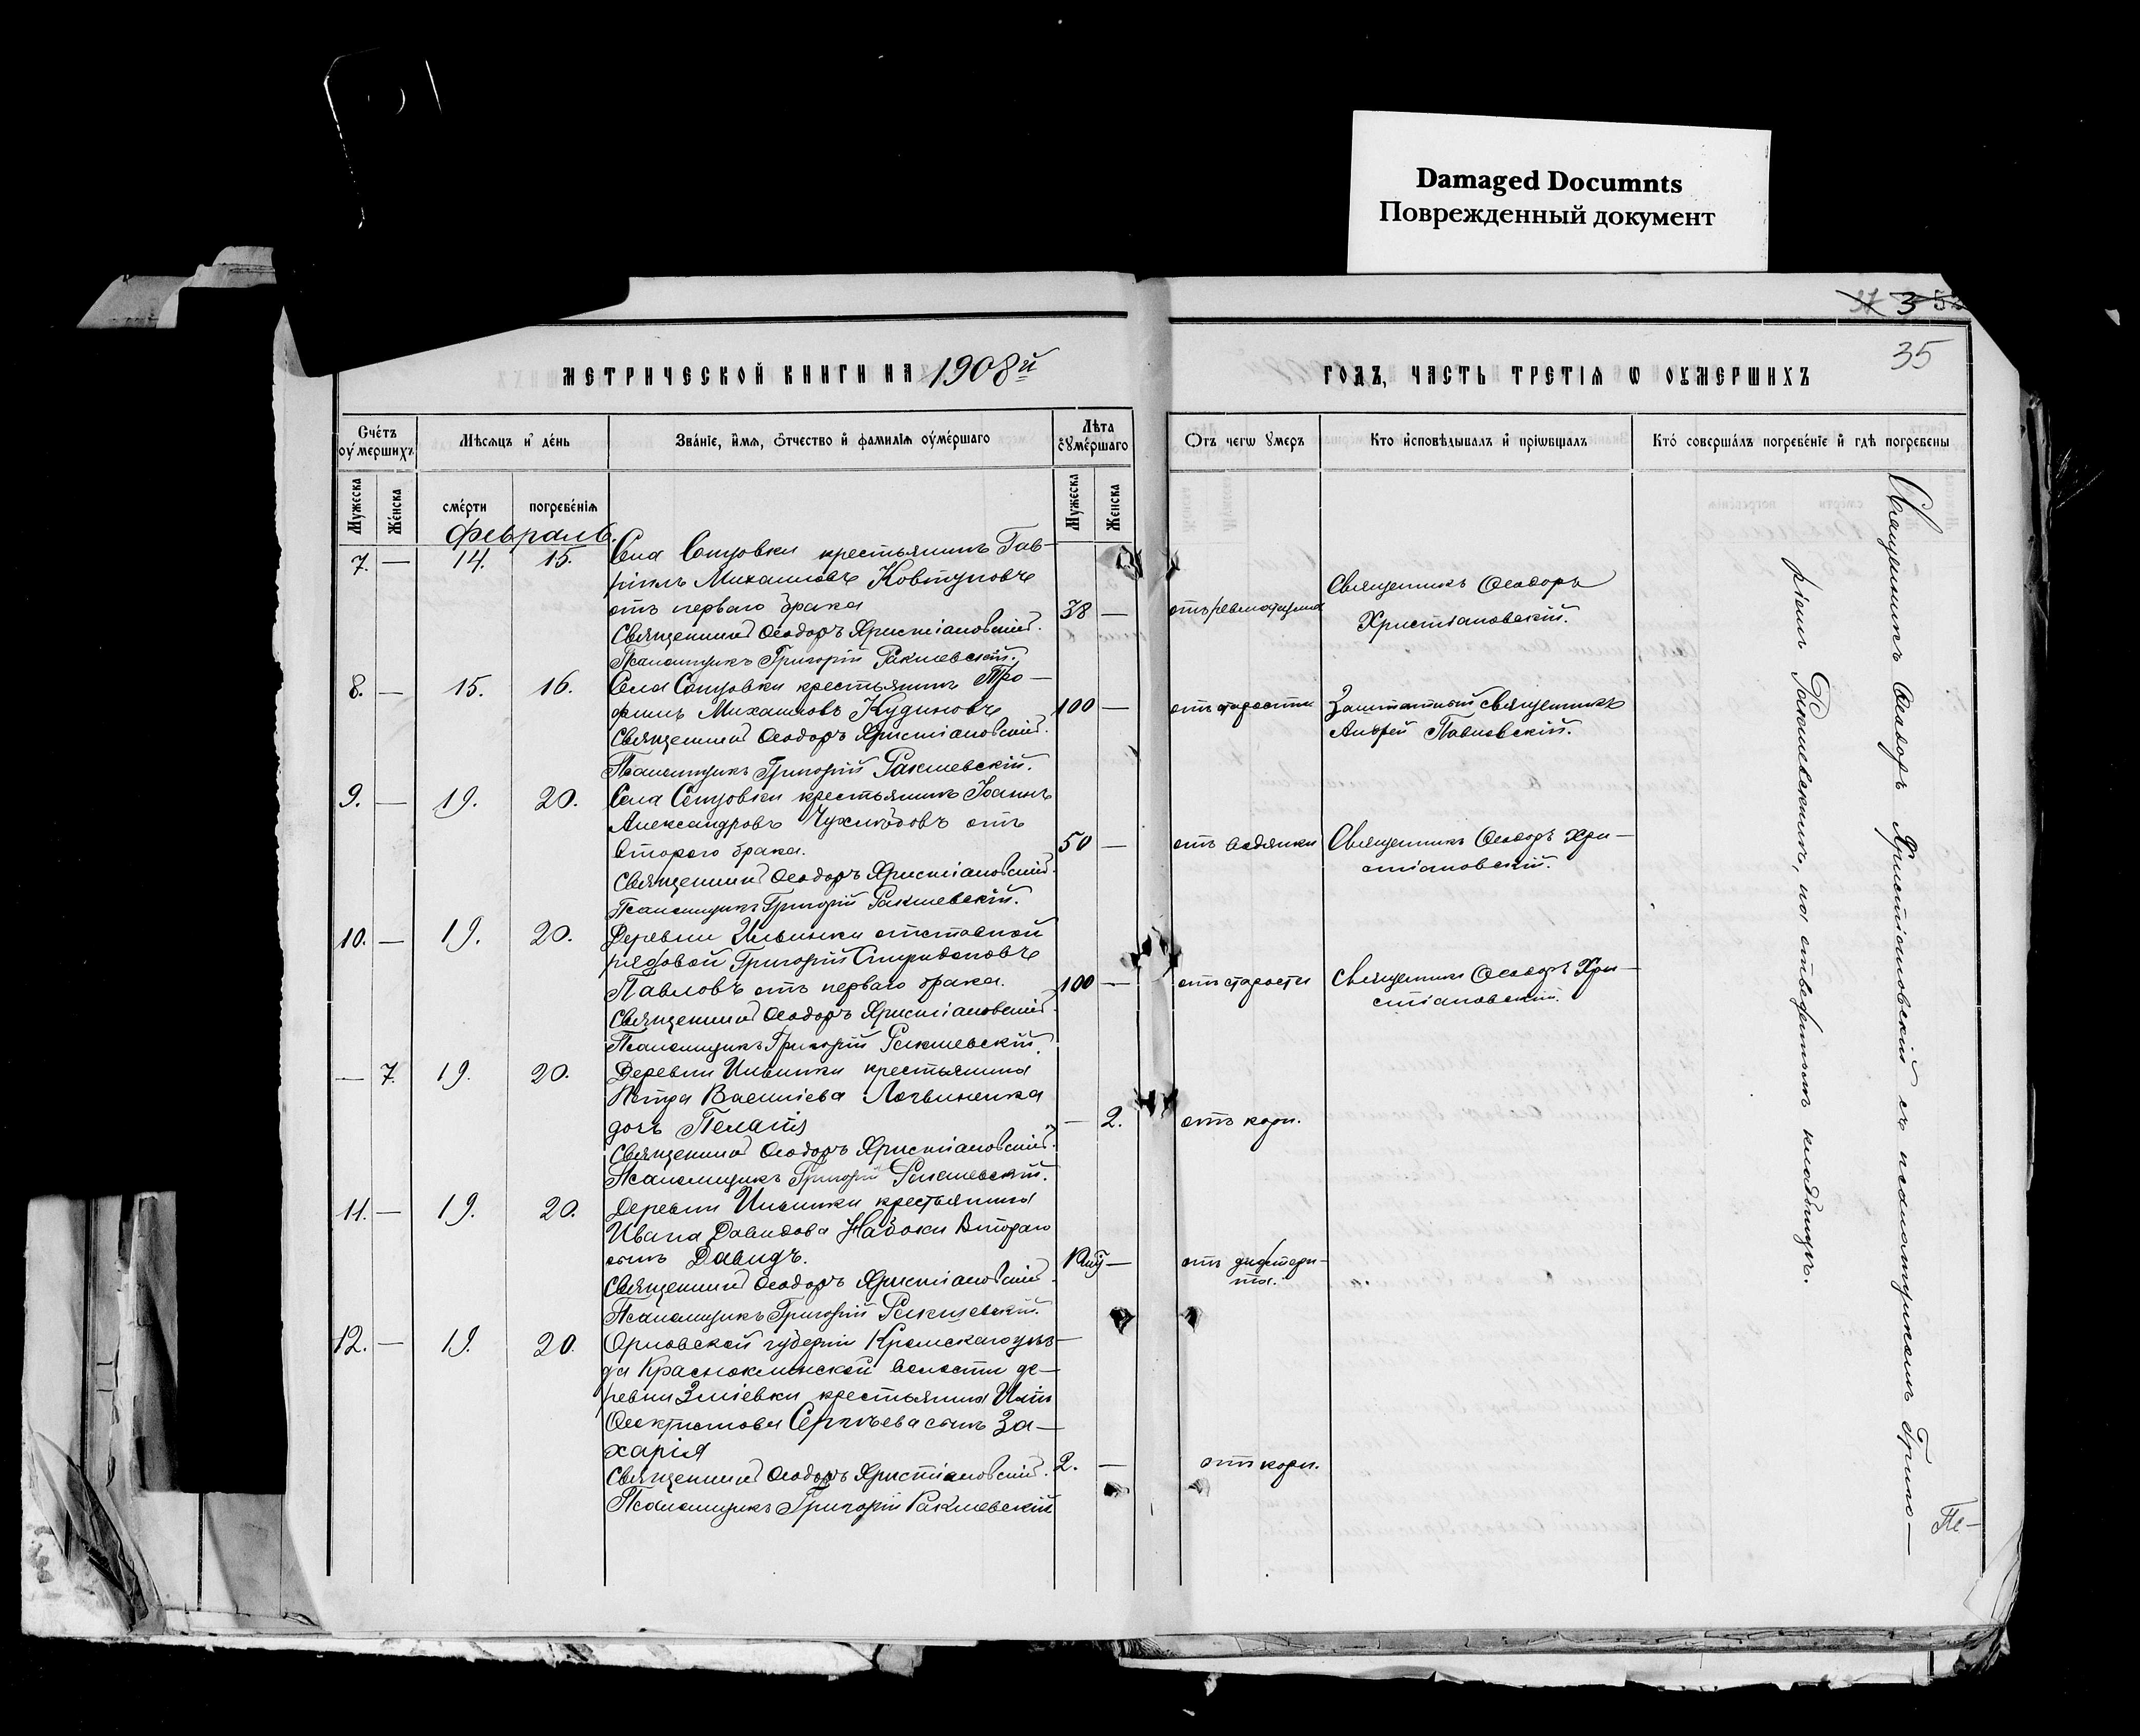 Damaged Documnts
Поврежденный документ
35
МЕТРИЧЕСКОЙ КНИГИ НА 1908й
ГОДЪ, ЧАСТЬ ТРЕТІѦ Ѡ ОУМЕРШИХЪ
Счетъ оумершихъ
Мѣсяцъ и день
Званіе, имя, отчество и фамилія оумершаго
Лѣта оумершаго
Отъ чегѡ умеръ
Кто исповѣдывалъ и пріѡбщалъ
Кто совершалъ погребеніе и гдѣ погребены
Мужеска
Женска
смерти
погребенія
Мужеска
Женска
Февраль.
7. — 14. 15.
Села крестьянинъ Гав-
ріилъ Михаиловъ Ковтуновъ
отъ перваго брака
38 —
отъ ревматизма
Священникъ Ѳеодоръ
Христіановскій.
Священникъ Ѳеодоръ Христіановскій.
Псаломщикъ Григорій Ракшевскій.
8. — 15. 16.
Села крестьянинъ Тро-
фимъ Михаиловъ Кудиновъ
100 —
отъ старости
Заштатный священникъ
Андрей Павловскій.
Священникъ Ѳеодоръ Христіановскій.
Псаломщикъ Григорій Ракшевскій.
9. — 19. 20.
Села крестьянинъ Іоаннъ
Александровъ отъ
второго брака.
50 —
отъ водянки
Священникъ Ѳеодоръ Хри-
стіановскій.
Священникъ Ѳеодоръ Христіановскій.
Псаломщикъ Григорій Ракшевскій.
10. — 19. 20.
Деревни Ильинки отставной
рядовой Григорій Спиридоновъ
Павловъ отъ перваго брака.
100 —
отъ старости
Священникъ Ѳеодоръ Хри-
стіановскій.
Священникъ Ѳеодоръ Христіановскій.
Псаломщикъ Григорій Ракшевскій.
— 7. 19. 20.
Деревни Ильинки крестьянина
Петра Василіева Логвиненка
дочь Пелагія
— 2.
отъ кори.
Священникъ Ѳеодоръ Христіановскій.
Псаломщикъ Григорій Ракшевскій.
11. — 19. 20.
Деревни Ильинки крестьянина
Ивана Давидова Набоки Второго
сынъ Давидъ.
—
отъ дифтери-
та.
Священникъ Ѳеодоръ Христіановскій.
Псаломщикъ Григорій Ракшевскій.
12. — 19. 20.
Орловской губерніи Кромскаго уѣз-
да волости де-
ревни Зміевки крестьянина
Ѳеоктистова Сергѣева сынъ За-
харія
2. —
отъ кори.
Священникъ Ѳеодоръ Христіановскій.
Псаломщикъ Григорій Ракшевскій
Священникъ Ѳеодоръ Христіановскій съ псаломщикомъ Григо-
ріемъ Ракшевскимъ, на отведенномъ кладбищѣ.
Пе-